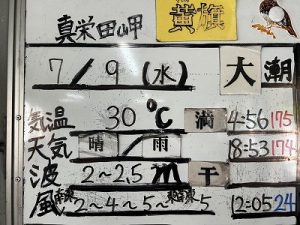 真栄田岬 黄旗
7/9(水) 大潮
気温 30℃ 満 4:56 175
天気 晴/雨 18:53 174
波 2~2.5m 干
風 南東 2~4~5~ 5 12:05 24